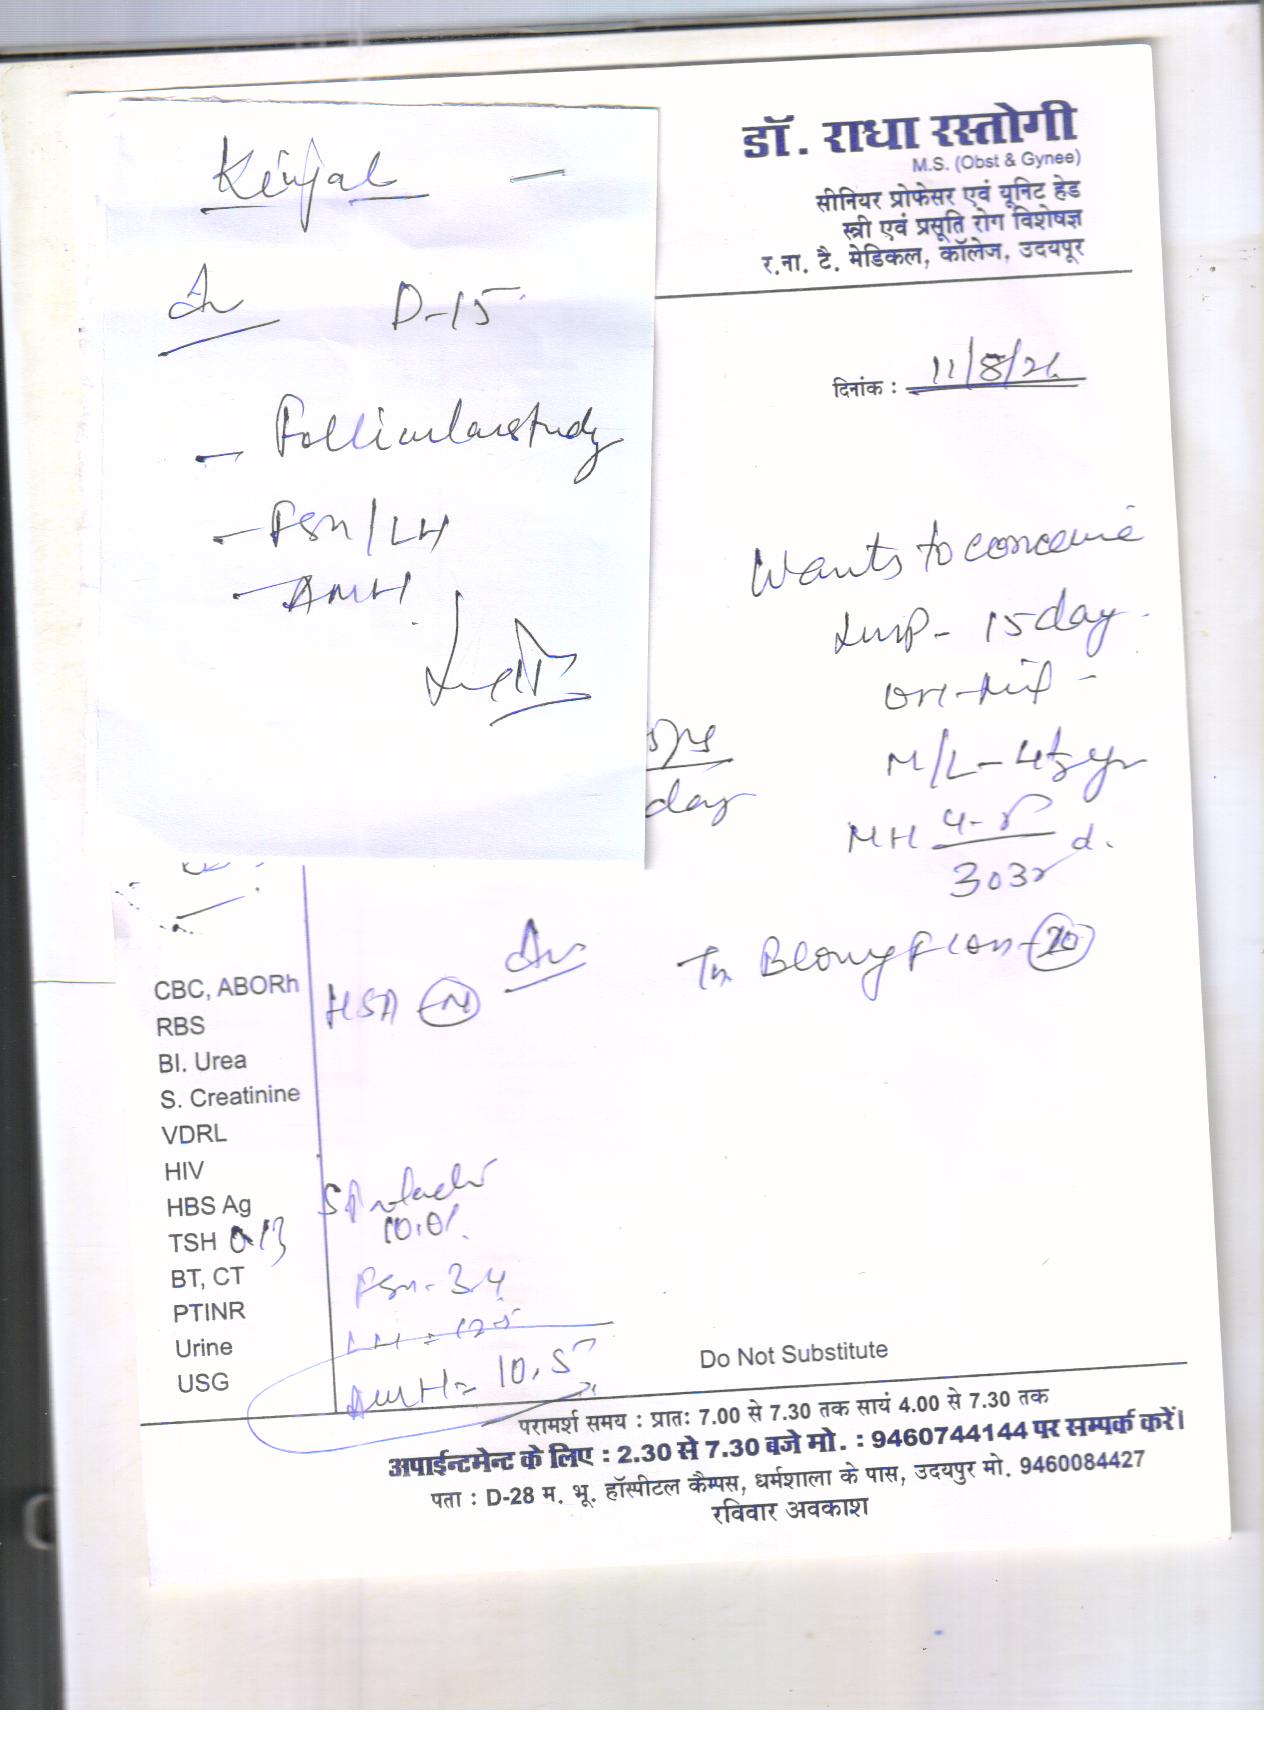 Kinjal
D-15
- Follicular study
- FSH/LH
- AMH
डॉ. राधा रस्तोगी
M.S. (Obst & Gynee)
सीनियर प्रोफेसर एवं यूनिट हेड
स्त्री एवं प्रसूति रोग विशेषज्ञ
र.ना. टै. मेडिकल, कॉलेज, उदयपुर
दिनांक : 11/8/26
Wants to conceive
Lmp - 15 day
M/L - 4½ yr
MH 4-5 d.
30 32
day
CBC, ABORh
RBS
Bl. Urea
S. Creatinine
VDRL
HIV
HBS Ag
TSH 0.13
BT, CT
PTINR
Urine
USG
HSA - N
S Prolactin
10.01
FSH - 3.4
LH = 12.5
AMH = 10.5
Do Not Substitute
परामर्श समय : प्रातः 7.00 से 7.30 तक सायं 4.00 से 7.30 तक
अपाईन्टमेन्ट के लिए : 2.30 से 7.30 बजे मो. : 9460744144 पर सम्पर्क करें।
पता : D-28 म. भू. हॉस्पीटल कैम्पस, धर्मशाला के पास, उदयपुर मो. 9460084427
रविवार अवकाश